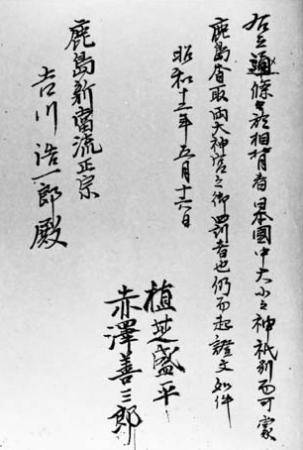 右之通條々於相背者日本國中大小之神祇別而可蒙
鹿島香取兩大神宮之御罰者也仍而起證文如件
昭和十二年五月十六日
植芝盛平
赤澤善三郎
鹿島新當流正宗
吉川浩一郎殿